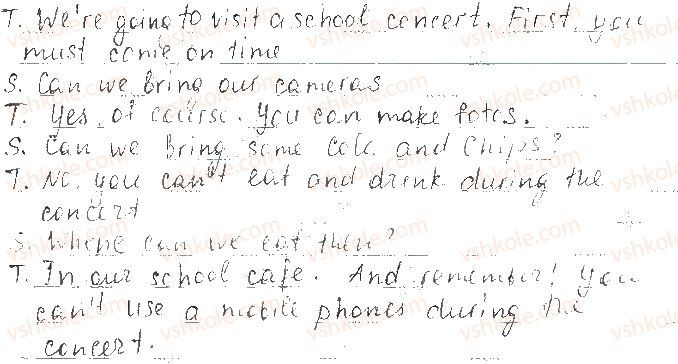 T. We're going to visit a school concert. First, you
must come on time
S. Can we bring our cameras
T. Yes, of course. You can make fotos.
S. Can we bring some Cola and Chips?
T. No, you can't eat and drink during the
concert
S. Where can we eat then?
T. In our school cafe. And remember! You
can't use a mobile phones during the
concert.